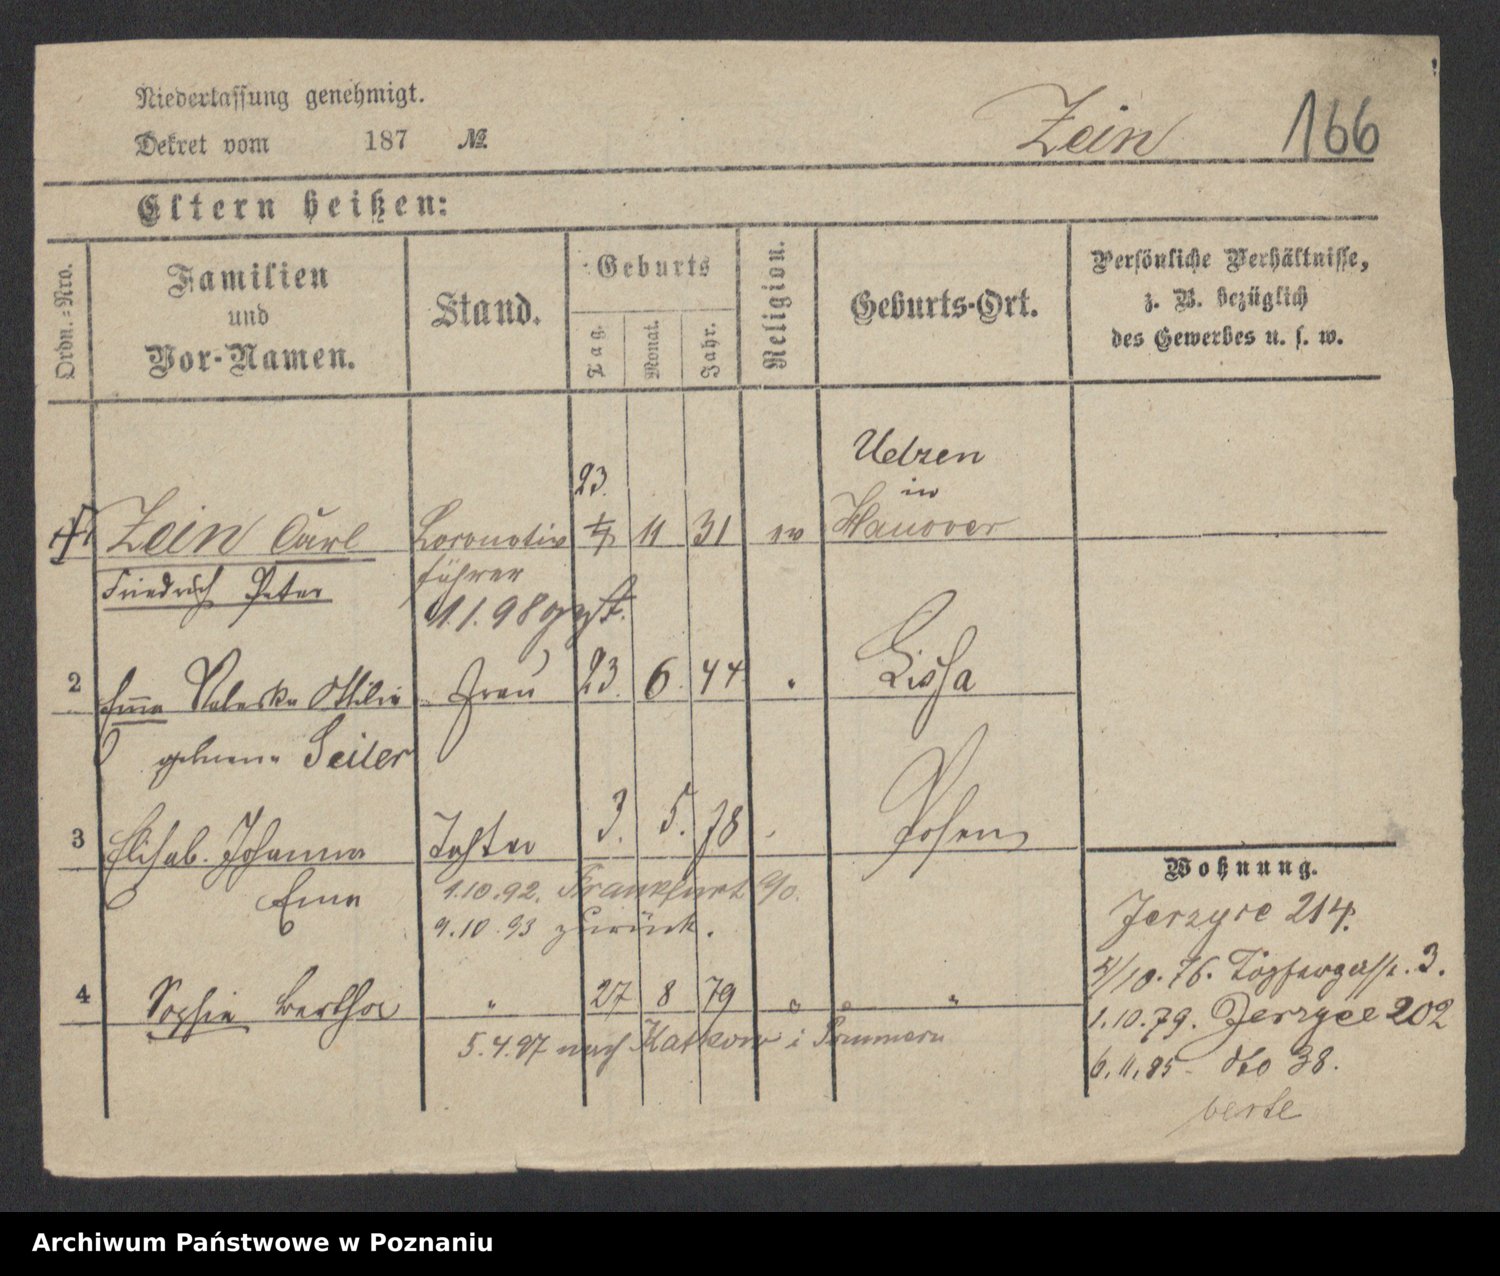 Niederlassung genehmigt.
Dekret vom 187 №
Zein 166
Eltern heißen:
Ordn.-Nro.
Familien
und
Vor-Namen.
Stand.
Geburts
Tag.
Monat.
Jahr.
Religion.
Geburts-Ort.
Persönliche Verhältnisse,
z. B. bezüglich
des Gewerbes u. s. w.
Uelzen
23.
in
Zein Carl Locomotiv 11 31 ev Hanover
Friedrich Peter führer
1.1.98
2 Emma Valeska Ottilie Frau 23. 6. 44 Lissa
geborene Seiler
3 Elisab. Johanna Tochter 3. 5. 78 Posen
Ema 1.10.92. Frankfurt a/o.
9.10.93 zurück.
4 Sophie Bertha " 27 8 79 " "
5.4.97 nach i Pommern
Wohnung.
Jerzyce 214.
5/10.76. Töpfergasse. 3.
1.10.79. Jerzyce 202
6.11.85 - dto 38.
verte
Archiwum Państwowe w Poznaniu